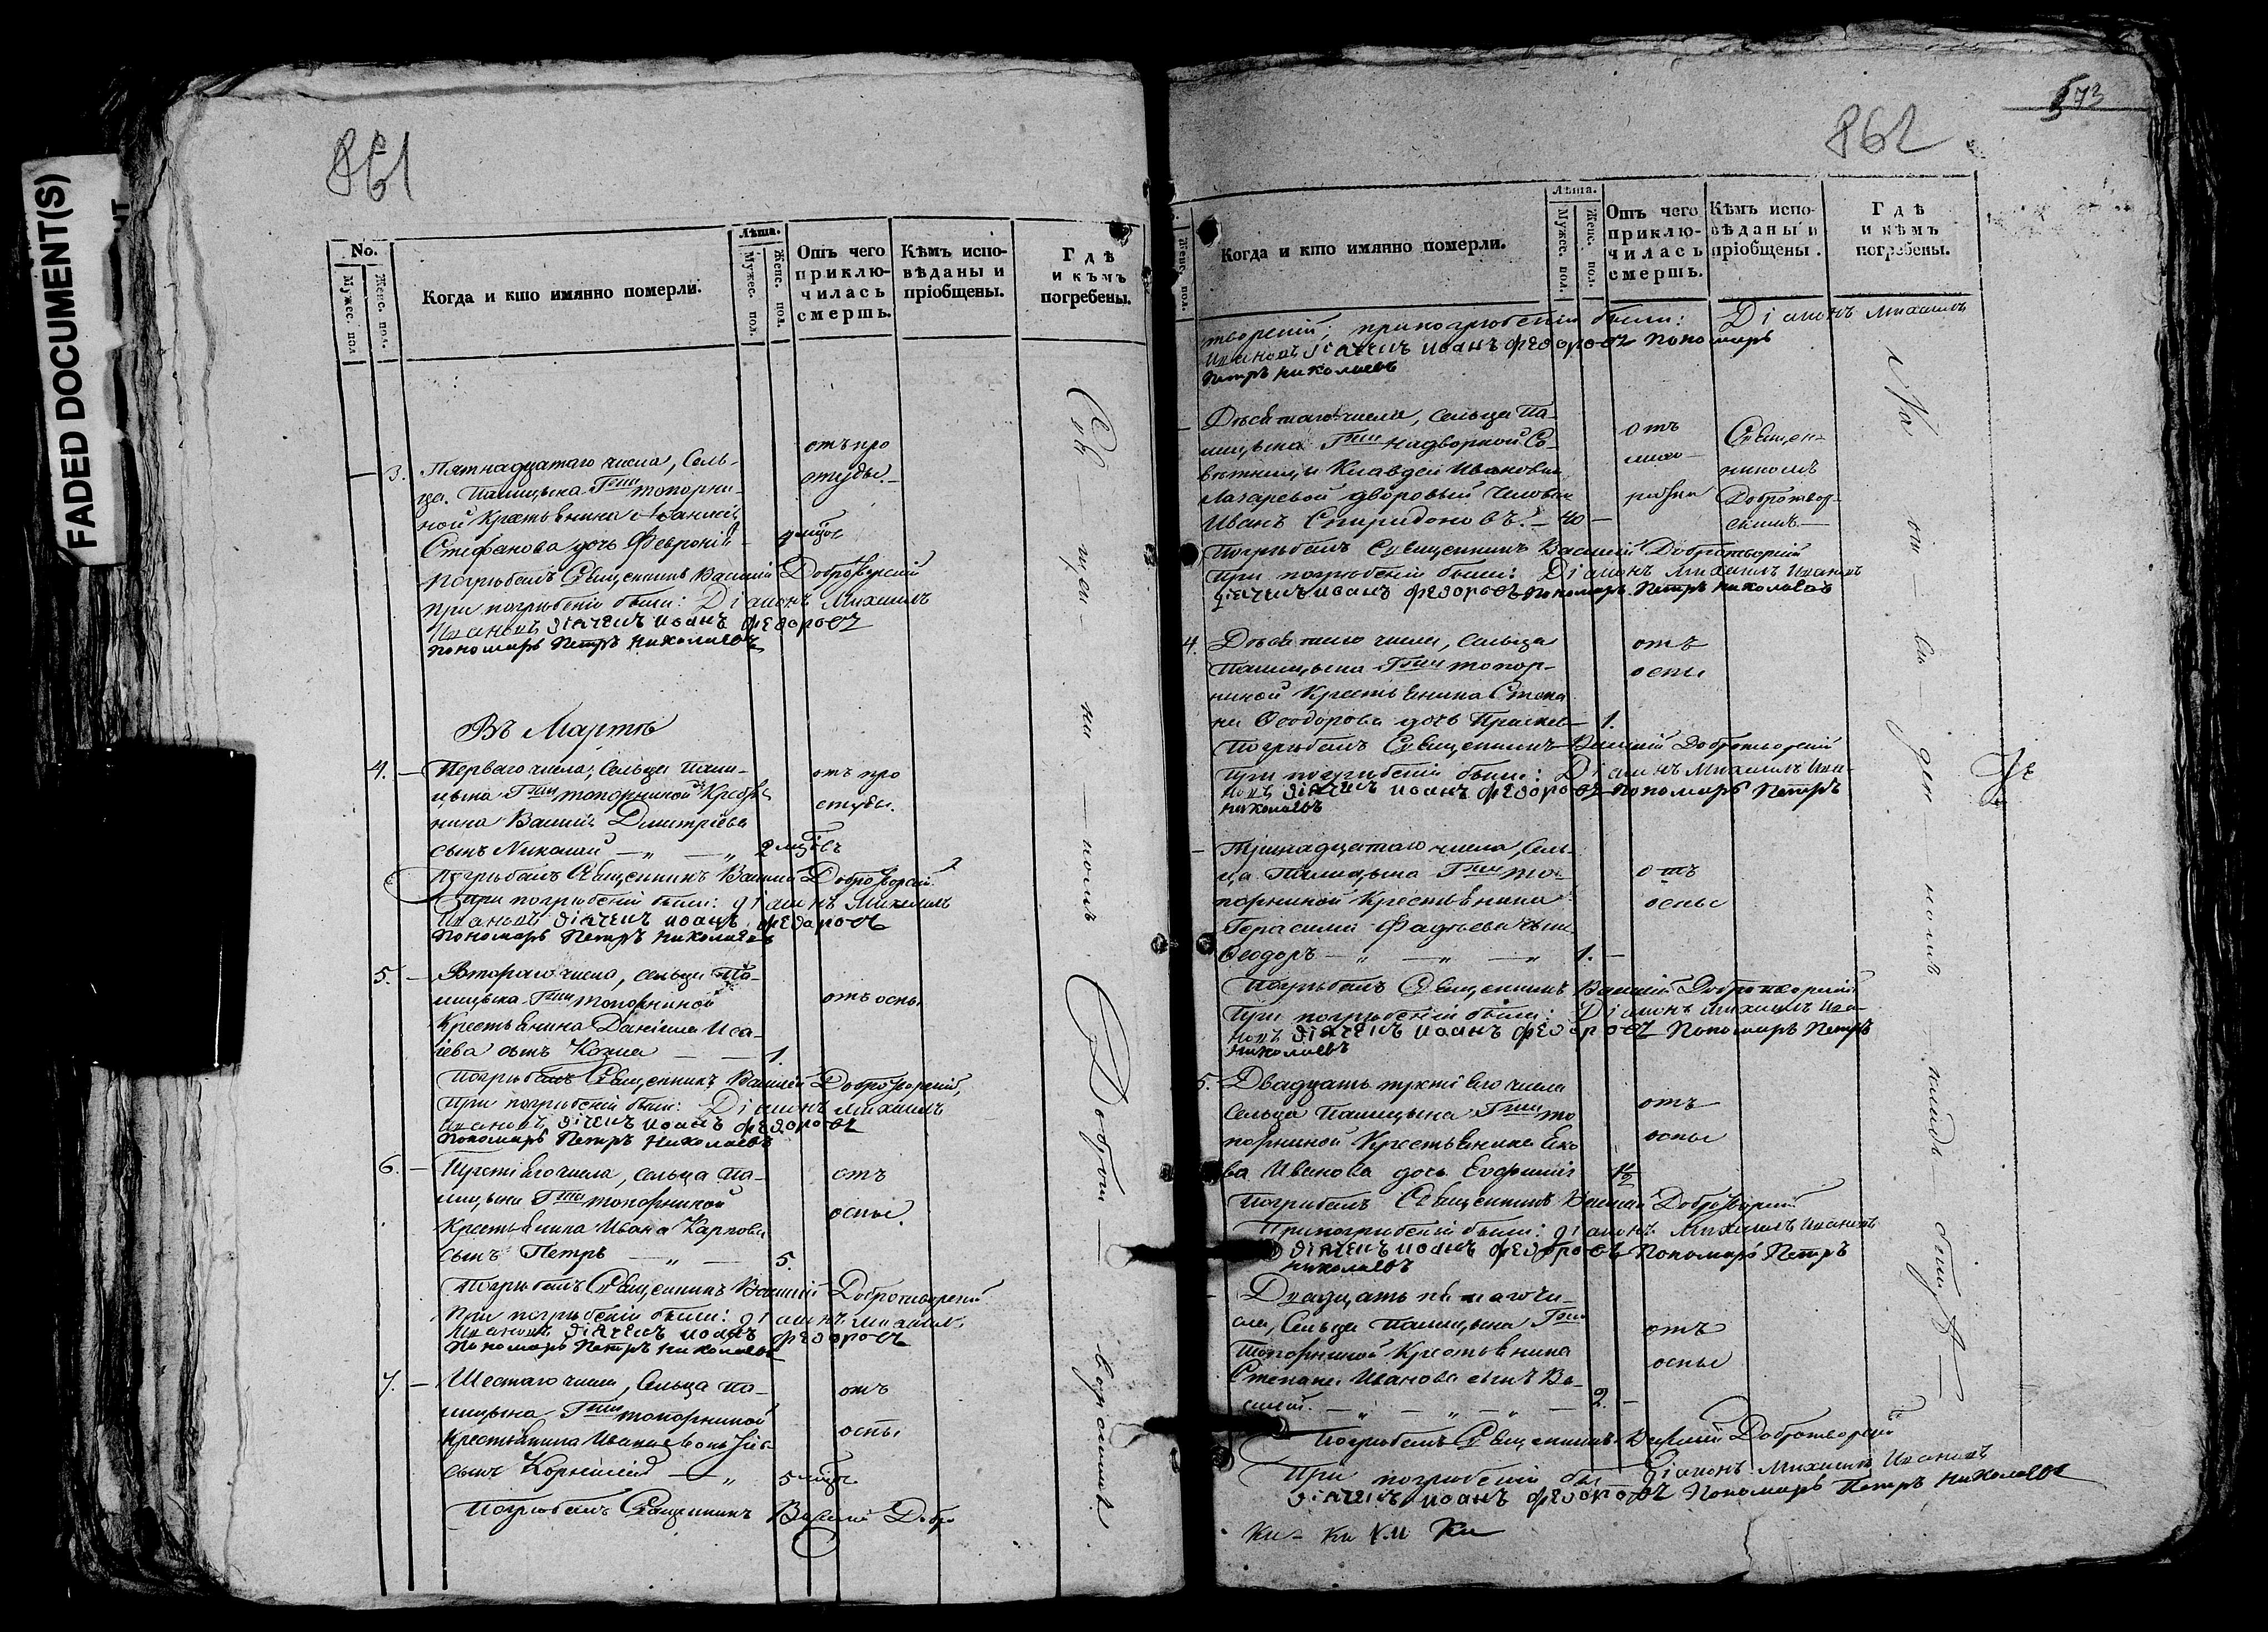 FADED DOCUMENT(S)
861
No.
Мужес. пол
Женс. пол.
Когда и кто имянно померли.
Лѣта.
Мужес. пол.
Женс. пол.
Отъ чего приклю-
чилась смерть.
Кѣмъ испо-
вѣданы и
пріобщены.
Гдѣ
и кѣмъ
погребены.
3. Пятнадцатаго числа, Сель-
ца Палицына Гжи топорни-
ной Крестьянина
Стефанова дочь Февронія
отъ про
студы.
Погребалъ Священникъ Василій Доброtворскій
при погребеніи были: Діаконъ Михаилъ
Ивановъ діячекъ иоанъ федоровъ
пономарь Петръ николаевъ
Въ Мартѣ
4. Перваго числа, Сельца Пали-
цына Гжи топорниной Крестья
нина Василія Дмитріева
сынъ Николай 2 мцовъ
отъ про
студы.
Погребалъ Священникъ Василій Добротворскій
При погребеніи были: діаконъ Михаилъ
Ивановъ діячекъ иоанъ федоровъ
пономарь Петръ николаевъ
5. Втораго числа, сельца Па-
лицына Гжи топорниной
Крестьянина Даніила Иса-
іева сынъ Козма 1
отъ оспы
Погребалъ Священникъ Василій Добротворскій,
При погребеніи были: Діаконъ Михаилъ
Ивановъ діячекъ иоанъ федоровъ
пономарь Петръ николаевъ
6. Третьяго числа, сельца Па-
лицына Гжи топорниной
Крестьянина Ивана Карпова
сынъ Петръ 5.
отъ
оспы.
Погребалъ Священникъ Василій Добротворскій
При погребеніи были: діаконъ Михаилъ
Ивановъ діячекъ иоанъ федоровъ
пономарь Петръ николаевъ
7. Шестаго числа, Сельца Па-
лицына Гжи топорниной
крестьянина Ивана
сынъ Корнилій 5 мцовъ
отъ
оспы
Погребалъ Священникъ Василій Добро
862
573
Женс. пол.
Когда и кто имянно померли.
Лѣта.
Мужес. пол.
Женс. пол.
Отъ чего
приклю-
чилась
смерть.
Кѣмъ испо-
вѣданы и
пріобщены.
Гдѣ
и кѣмъ
погребены.
творскій; при погребеніи были: Діаконъ Михаилъ
Ивановъ діячекъ иоанъ федоровъ пономарь
Петръ николаевъ
Десятаго числа, сельца Па-
лицына Гжи надворной Со-
вѣтницы Клавдеи Ивановны
Лазаревой дворовый человѣкъ
Иванъ Спиридоновъ. 40
отъ
Священ-
никомъ
Добротвор-
скимъ
Погребалъ Священникъ Василій Добротворскій
При погребеніи были: Діаконъ Михаилъ Ивановъ
діячекъ иванъ федоровъ пономарь Петръ николаевъ
4. Десятаго числа, сельца
Палицына Гжи топор-
ниной Крестьянина Степа
на Ѳеодорова дочь 1.
отъ
оспы
Погребалъ Священникъ Василій Добротворскій
При погребеніи были: Діаконъ Михаилъ Ива-
новъ діячекъ иоанъ федоровъ пономарь Петръ
николаевъ
Тринадцатаго числа, Сель-
ца Палицына Гжи то-
порниной Крестьянина
Герасима Фадѣева сынъ
Ѳеодоръ 1.
отъ
оспы
Погребалъ Священникъ Василій Добротворскій
При погребеніи были: Діаконъ Михаилъ Ива-
новъ діячекъ иоанъ федоровъ Пономарь Петръ
николаевъ
5. Двадцать третьяго числа
Сельца Палицына Гжи то
порниной Крестьянина
Иванова дочь Евфимія
отъ
оспы
Погребалъ Священникъ Василій Добротворскій
При погребеніи были: діаконъ Михаилъ Ивановъ
діячекъ иоанъ федоровъ Пономарь Петръ
николаевъ
Двадцать пятаго чи-
сла, Сельца Палицына Гжи
Топорниной Крестьянина
Степана Иванова сынъ Ва-
силій. 2.
отъ
оспы
Погребалъ Священникъ Василій Добротворскій
При погребеніи были діаконъ Михаилъ Ивановъ
діячекъ иоанъ федоровъ Пономарь Петръ николаевъ